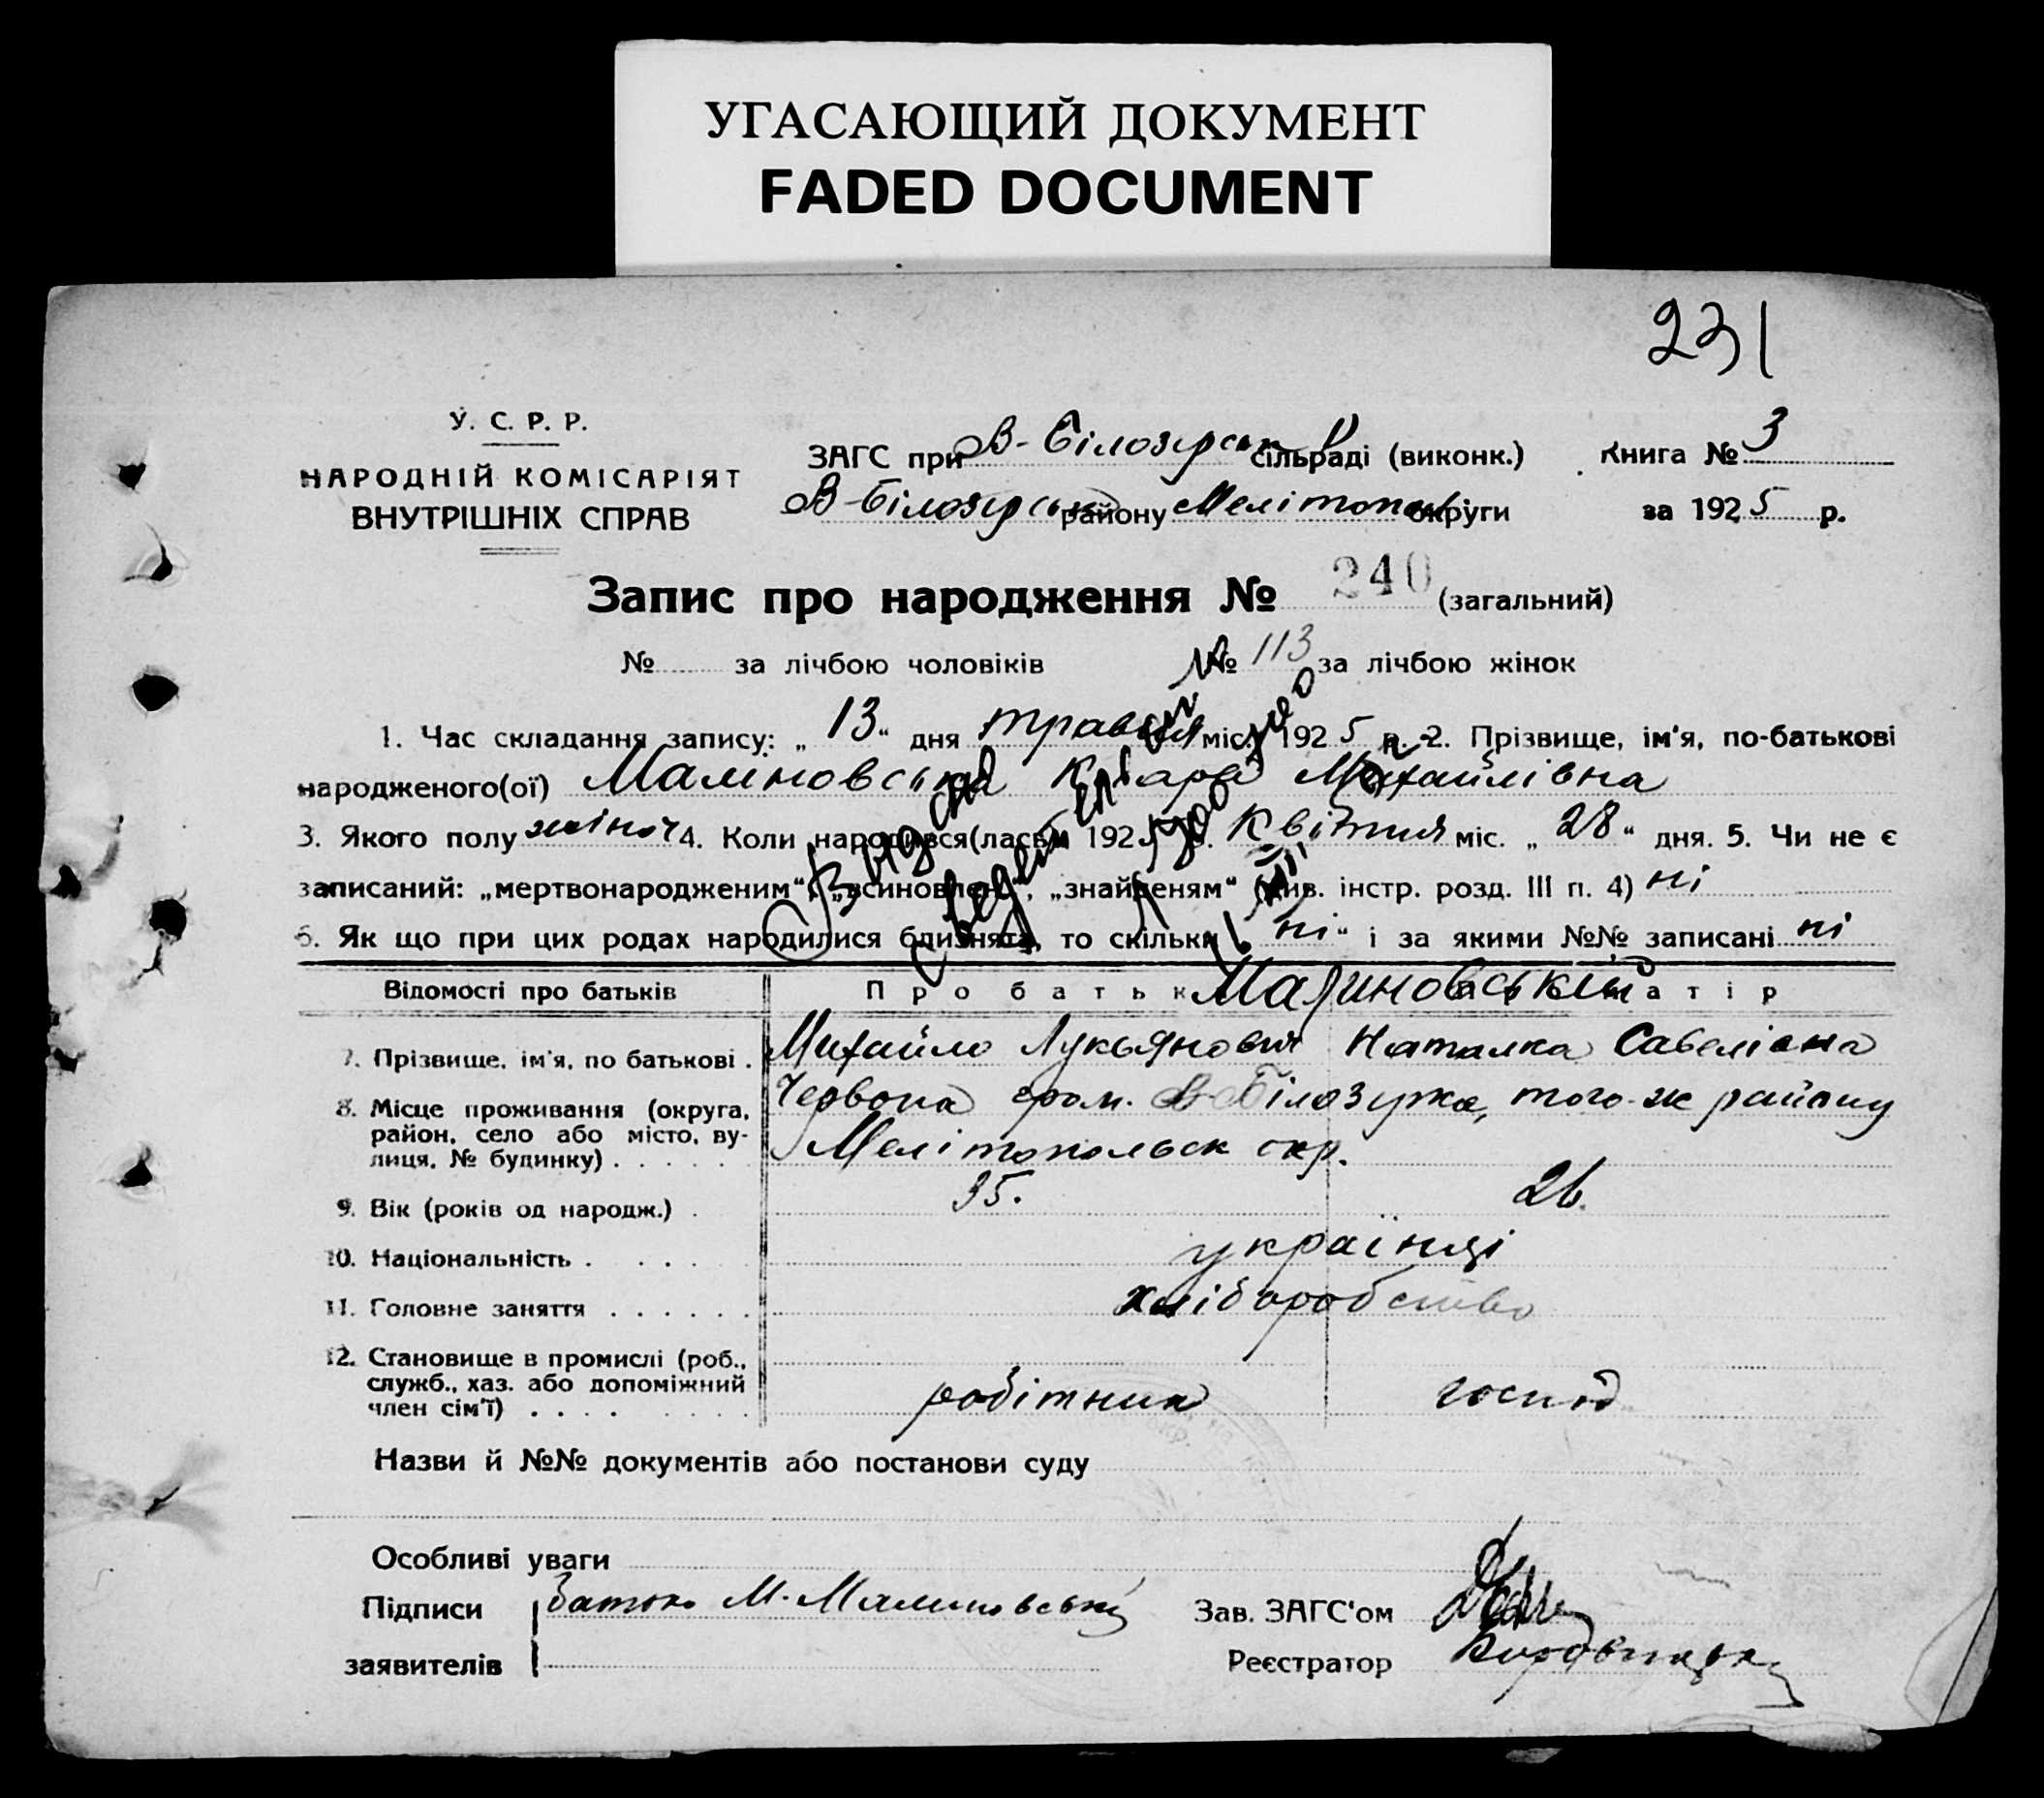 УГАСАЮЩИЙ ДОКУМЕНТ
FADED DOCUMENT
231
У. С. Р. Р.
НАРОДНІЙ КОМІСАРІЯТ
ВНУТРІШНІХ СПРАВ
ЗАГС при В-Білозірськ сільраді (виконк.) Книга № 3
В-Білозірськ району Мелітопол округи за 1925 р.
Запис про народження № 240 (загальний)
№ за лічбою чоловіків № 113 за лічбою жінок
1. Час складання запису: „13“ дня травня міс. 1925 р. 2. Прізвище, ім'я, по-батькові
народженого(ої) Маліновська Михайлівна
3. Якого полу жіноч 4. Коли народився(лась) 192 р. Квітня міс. „28“ дня. 5. Чи не є
записаний: „мертвонародженим“, „всиновлен.“, „знайденям“ (див. інстр. розд. III п. 4) ні
6. Як що при цих родах народилися близнята, то скільки „ні“ і за якими №№ записані ні
Відомості про батьків Про батька матір
Малиновський
7. Прізвище, ім'я, по батькові . Михайло Лукьянович Наталка Савеліана
8. Місце проживання (округа, район, село або місто, вулиця, № будинку) . Червона гром. В-Білозирка, того-ж району
Мелітопольск окр.
9. Вік (років од народж.) . 35. 26.
10. Національність . українці
11. Головне заняття . хліборобство
12. Становище в промислі (роб., служб., хаз. або допоміжний член сім'ї) . робітник господ
Назви й №№ документів або постанови суду
Особливі уваги
Підписи Батько М. Малиновський Зав. ЗАГС'ом
заявителів Реєстратор